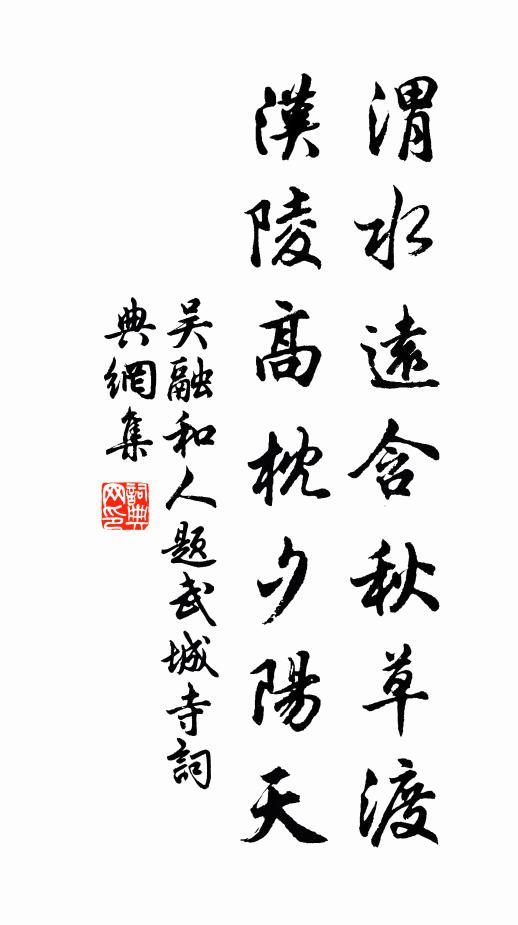 渭水遠含秋草渡
漢陵高枕夕陽天
吴融和人題武城寺詞
典網集
詞典
网印